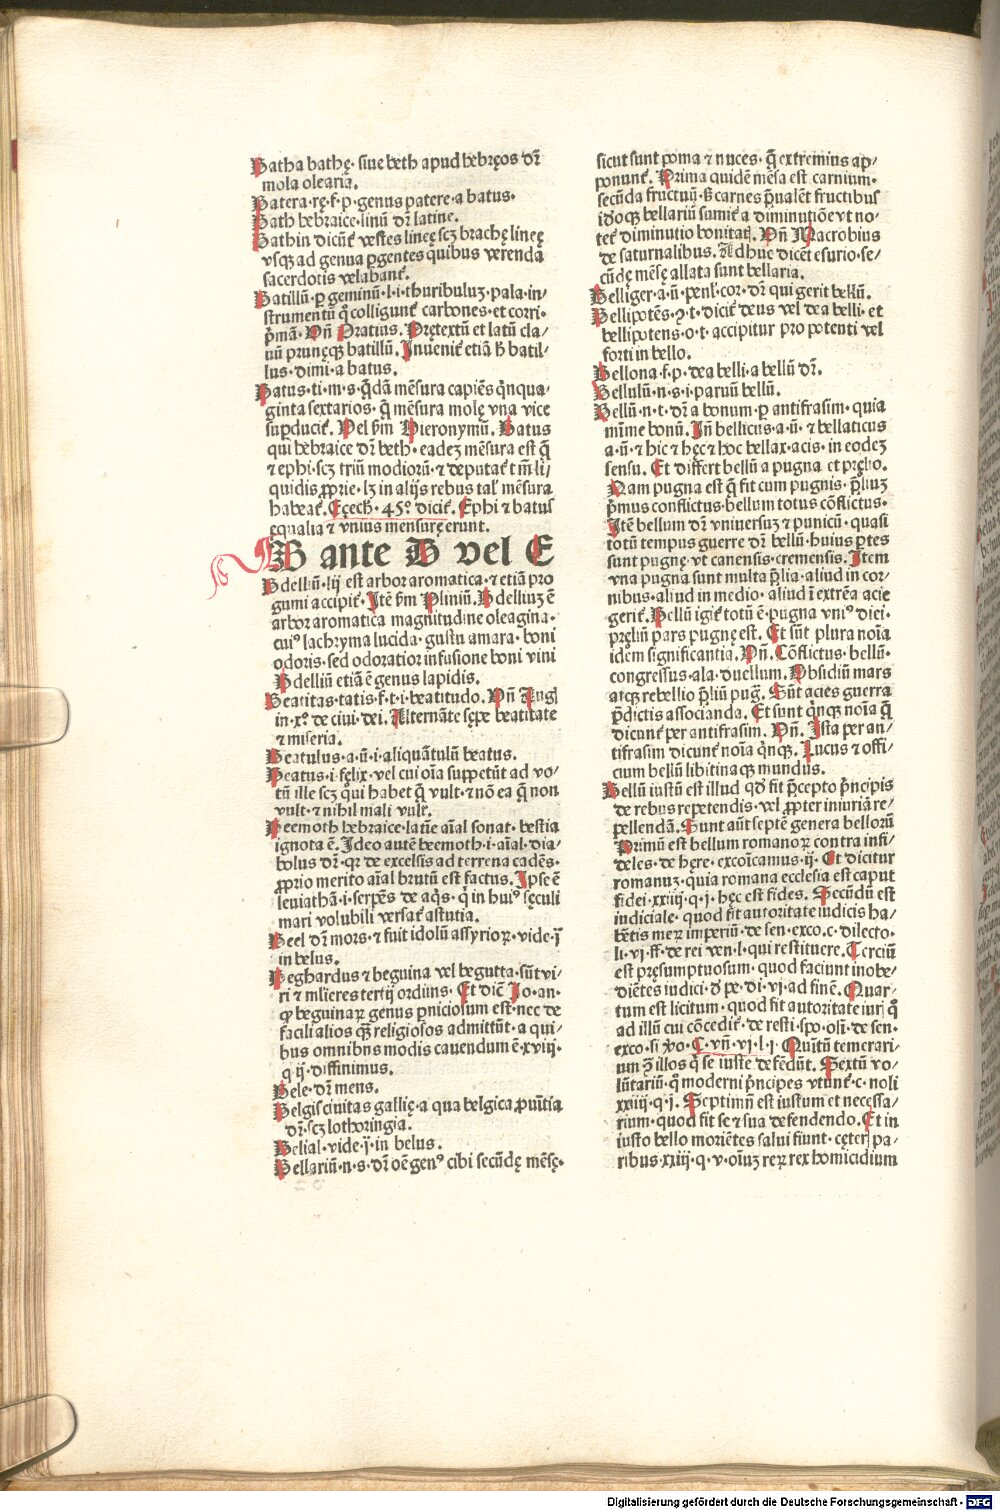 Batha bathę· siue beth apud hebręos dr̄
mola olearia.
Batera·rę·f·p·genus patere·a batus·
Bath hebraice·linū dr̄ latine.
Bathin dicūt̄ vestes lineę scꝫ brachę lineę
vsqꝫ ad genua ꝑgentes quibus verenda
sacerdotis velabant̄.
Batillū·ꝑ geminū·l·i·thuribuluꝫ·pala·in/
strumentū q̄ colligunt̄ carbones·et corri·
p̄mā· Vn̄ Oratius. Prętextū et latū cla/
uū prunęqꝫ batillū. Inuenit̄ etiā ħ batil/
lus·dimi·a batus.
Batus·ti·m·s·q̄dā mēsura capiēs q̄nqua·
ginta sextarios· q̄ mēsura molę vna vice
suꝑducit̄. Vel ẜm Hieronymū. Batus
qui hebraice dr̄ beth·eadeꝫ mēsura est q̄
⁊ ephi·scꝫ triū modiorū·⁊ deputat̄ tm̄ li/
quidis ꝓprie·lꝫ in alijs rebus tal' mēsura
habeat̄. Eęech·45·° dicit̄. Ephi ⁊ batus
equalia ⁊ vnius mensurę erunt.
B ante B vel E
Bdelliū·lij est arbor aromatica·⁊ etiā pro
gumi accipit̄·Itē ẜm Pliniū. Bdelliuꝫ ē
arbor aromatica magnitudine oleagina·
cui⁹ lachryma lucida·gustu amara·boni
odoris·sed odoratior infusione boni vini
Bdelliū etiā ē genus lapidis.
Beatitas·tatis·f·t·i·beatitudo. Vn̄ Augl
in·x°·de ciui·dei. Alternāte sępe beatitate
⁊ miseria.
Beatulus·a·ū·i·aliquātulū beatus.
Beatus·i·fęlix·vel cui oīa suppetūt ad vo/
tū ille scꝫ qui habet q̄ vult·⁊ nō ea q̄ non
vult·⁊ nihil mali vult.
Beemoth hebraice·latīe aīal sonat·bestia
ignota ē. Ideo autē beemoth·i·aīal·dia/
bolus dr̄·qr de excelsis ad terrena cadēs·
ꝓprio merito aīal brutū est factus. Ipse ē
leuiathā·i·serpēs de aq̄s·q̄ in hui⁹ sęculi
mari volubili versat̄ astutia.
Beel dr̄ mors·⁊ fuit idolū assyrioꝝ·vide·ī
in belus.
Beghardus ⁊ beguina vel begutta·sūt vi/
ri ⁊ mlieres tertij ordinis· Et dic̄ Io·an·
ꝙ beguinaꝝ genus ꝑniciosum est·nec de
facili alios qꝫ religiosos admittūt·a qui/
bus omnibns modis cauendum ē·xviij·
q ij·diffinimus.
Bele·dr̄ mens.
Belgis ciuitas gallię·a qua belgica ꝓuītia
dr̄·scꝫ lothoringia.
Belial·vide·ī·in belus.
Bellariū·n·s·dr̄ oē gen⁹ cibi secūdę mēsę·
sicut sunt poma ⁊ nuces· q̄ extremius ap/
ponunt̄. Prima quidē mēsa est carnium·
secūda fructuū·ẜ carnes p̄ualēt fructibus
idoqꝫ bellariū sumit̄ a diminutiōe vt no/
tet̄ diminutio bonitatꝭ. Vn̄ Macrobius
de saturnalibus. Adhuc dicet esurio·se/
cūdę mēsę allata sunt bellaria.
Belliger·a·ū·penl·cor·dr̄ qui gerit bellū.
Bellipotēs·ꝯ·t·dicit̄ deus vel dea belli·et
bellipotens·o·t·accipitur pro potenti vel
forti in bello.
Bellona·f·p·dea belli·a bellū dr̄.
Bellulū·n·s·i·paruū bellū.
Bellū·n·t·dr̄ a bonum·ꝑ antifrasim·quia
mīme bonū. In̄ bellicus·a·ū·⁊ bellaticus
a·ū·⁊ hic ⁊ hęc ⁊ hoc bellax·acis·in eodeꝫ
sensu. Et differt bellū a pugna et pręlio.
Nam pugna est q̄ fit cum pugnis·p̄liuꝫ
p̄mus conflictus·bellum totus cōflictus·
Itē bellum dr̄ vniuersuꝫ ⁊ punicū·quasi
totū tempus guerre dr̄ bellū·huius ꝑtes
sunt pugnę·vt canensis·cremensis. Item
vna pugna sunt multa p̄lia·aliud in cor/
nibus·aliud in medio·aliud ī extrēa acie
gerit̄. Bellū igit̄ totū ē·pugna vni⁹ diei·
pręliū pars pugnę est. Et sūt plura noīa
idem significantia. Vn̄. Cōflictus·bellū·
congressus·ala·duellum. Obsidiū mars
atqꝫ rebellio p̄liū pug. Sūt acies guerra
p̄dictis associanda. Et sunt q̄nqꝫ noīa q̄
dicunt̄ per antifrasim. Vn̄. Ista per an/
tifrasim dicunt̄ noīa q̄nqꝫ. Lucus ⁊ offi/
cium bellū libitina qꝫ mundus.
Bellū iustū est illud qd̄ fit p̄cepto p̄ncipis
de rebus repetendis·vel ꝓpter iniuriā re/
pellendā. Sunt aūt septē genera bellorū
Primū est bellum romanoꝝ contra infi/
deles·de hęre·excoīcamus·ij· Et dicitur
romanuꝫ·quia romana ecclesia est caput
fidei·xxiiij·q·j·hęc est fides. Secūdū est
iudiciale·quod fit autoritate iudicis ha/
bētis meꝝ imperiū·de sen·exco·c·dilecto·
li·vj·ff·de rei ven·l·qui restituere. Terciū
est pręsumptuosum·quod faciunt inobe/
diētes iudici·d pe·di·vj·ad finē. Quar/
tum est licitum·quod fit autoritate iurꝭ q̄
ad illū cui cōcedit̄·de resti·spo·olī·de sen·
exco·si ꝟo·C·vn̄·vj·l·j· Quītū temerari/
um ꝙ illos q̄ se iuste defēdūt. Sextū vo/
lūtariū·q̄ moderni p̄ncipes vtunt̄·c·noli
xxiij·q·j·Septimū est iustum et necessa/
rium·quod fit se ⁊ sua defendendo. Et in
iusto bello moriētes salui fiunt·cęterꝭ pa/
ribus·xxiij·q·v·oīuꝫ reꝝ rex homicidium
Digitalisierung gefördert durch die Deutsche Forschungsgemeinschaft - DFG